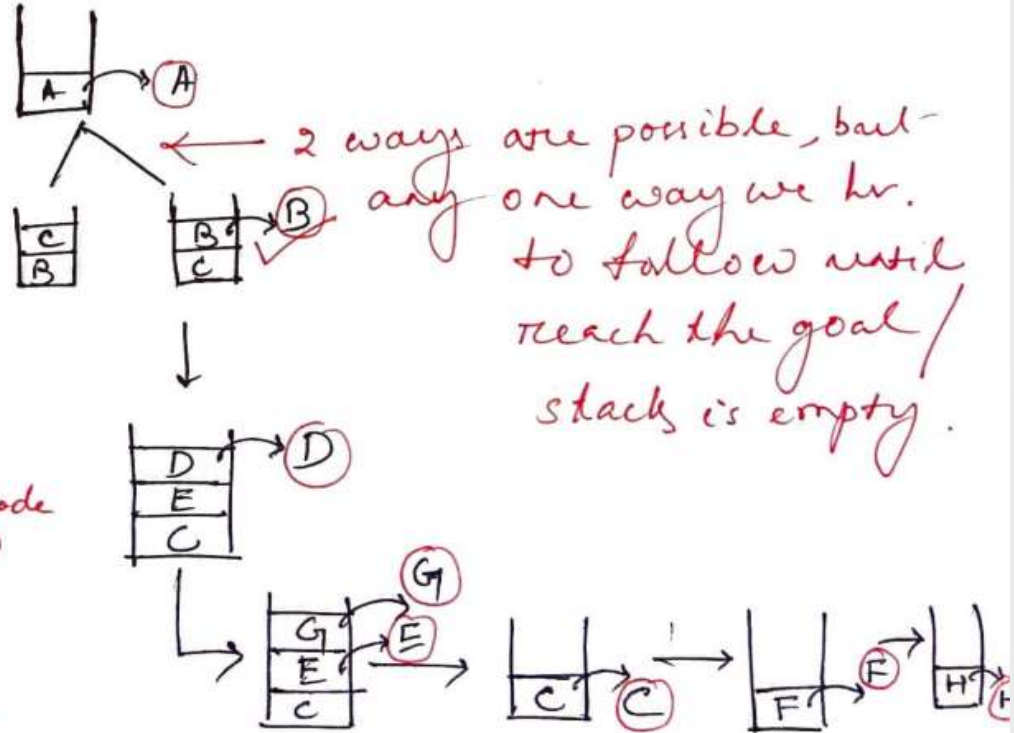 A A
2 ways are possible, but
C B B any one way we hv.
B C to follow until
reach the goal/
stack is empty.
D D
E
C
ode
G
G E
E
C
C C
F F
H H